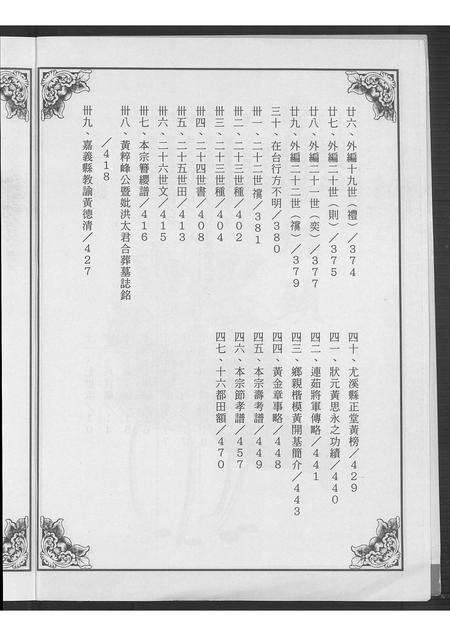 廿六、外編十九世（禮）／374
廿七、外編二十世（則）／375
廿八、外編二十一世（奕）／377
廿九、外編二十二世（㵾）／379
三十、在台行方不明／380
卅一、二十二世㵾／381
卅二、二十三世種／402
卅三、二十三世種／404
卅四、二十四世書／408
卅五、二十五世田／413
卅六、二十六世文／415
卅七、本宗簪纓譜／416
卅八、黃粹峰公暨妣洪太君合葬墓誌銘
／418
卅九、嘉義縣教諭黃德清／427
四十、尤溪縣正堂黃榜／429
四一、狀元黃思永之功績／440
四二、連茹將軍傳略／441
四三、鄉親楷模黃開基簡介／443
四四、黃金章事略／448
四五、本宗壽考譜／449
四六、本宗節孝譜／457
四七、十六都田額／470